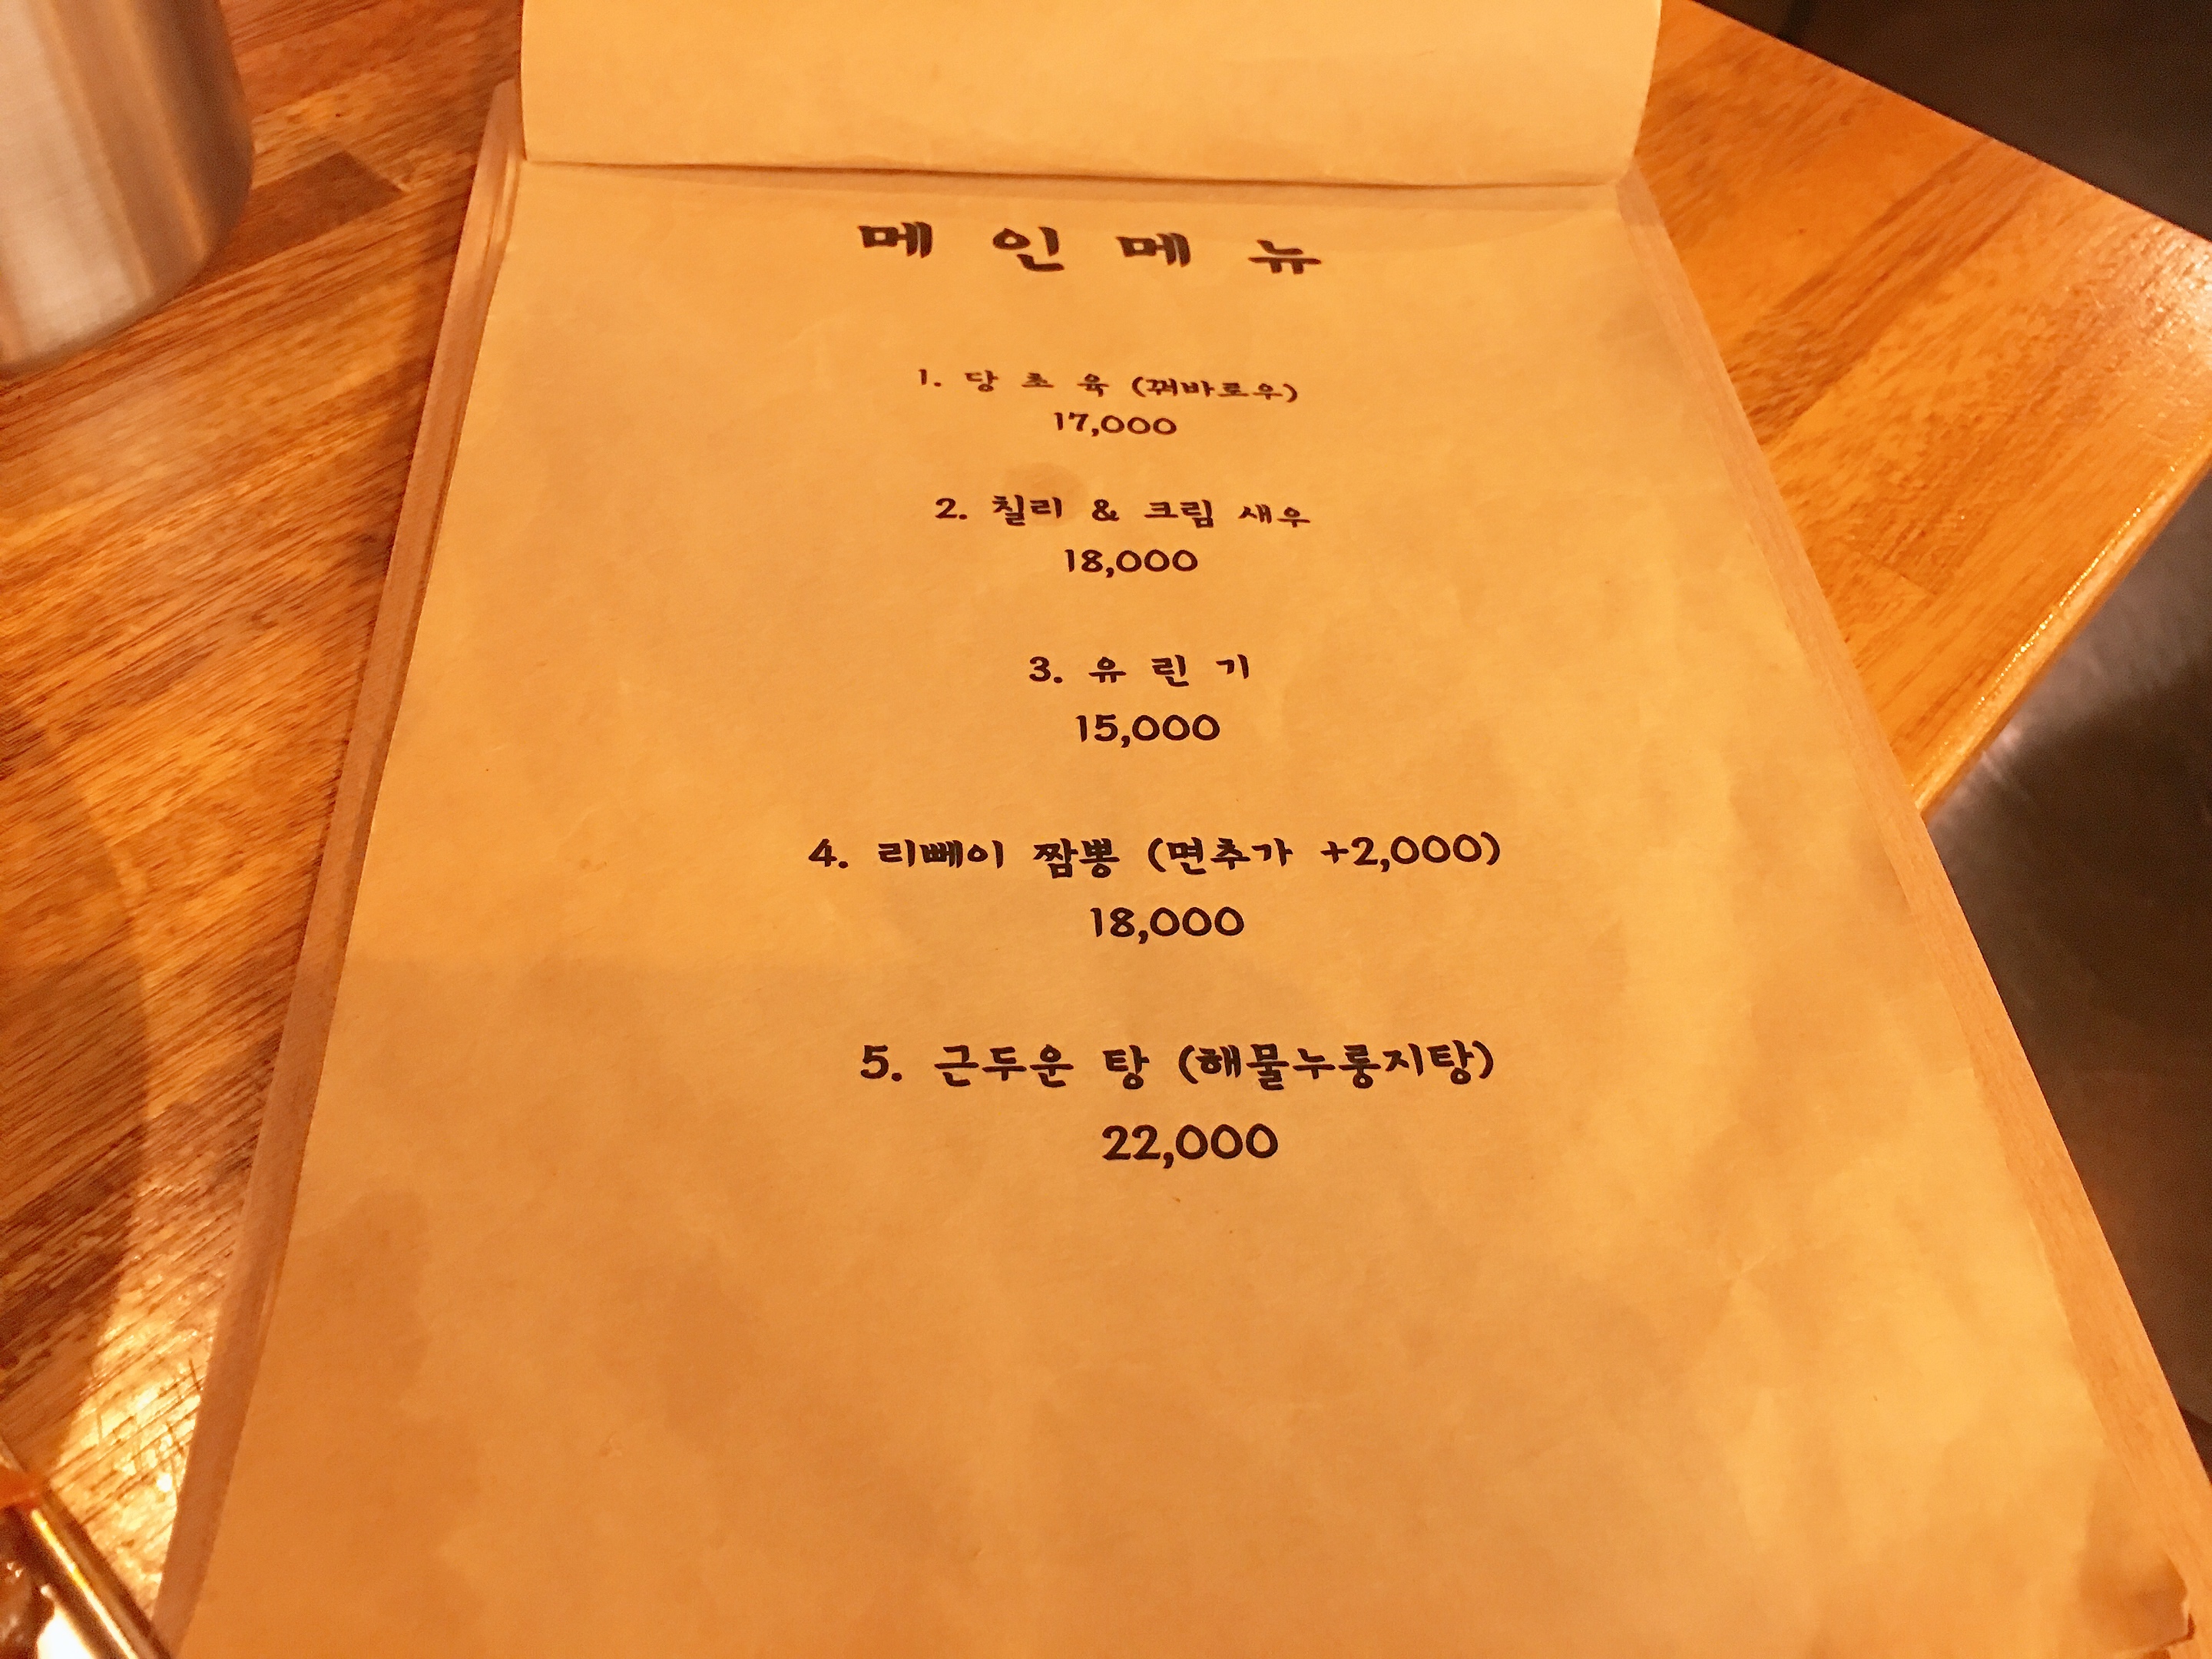 메 인 메 뉴
1. 당 초 육 (꿔바로우)
17,000
2. 칠리 & 크림 새우
18,000
3. 유 린 기
15,000
4. 리뻬이 짬뽕 (면추가 +2,000)
18,000
5. 근두운 탕 (해물누룽지탕)
22,000